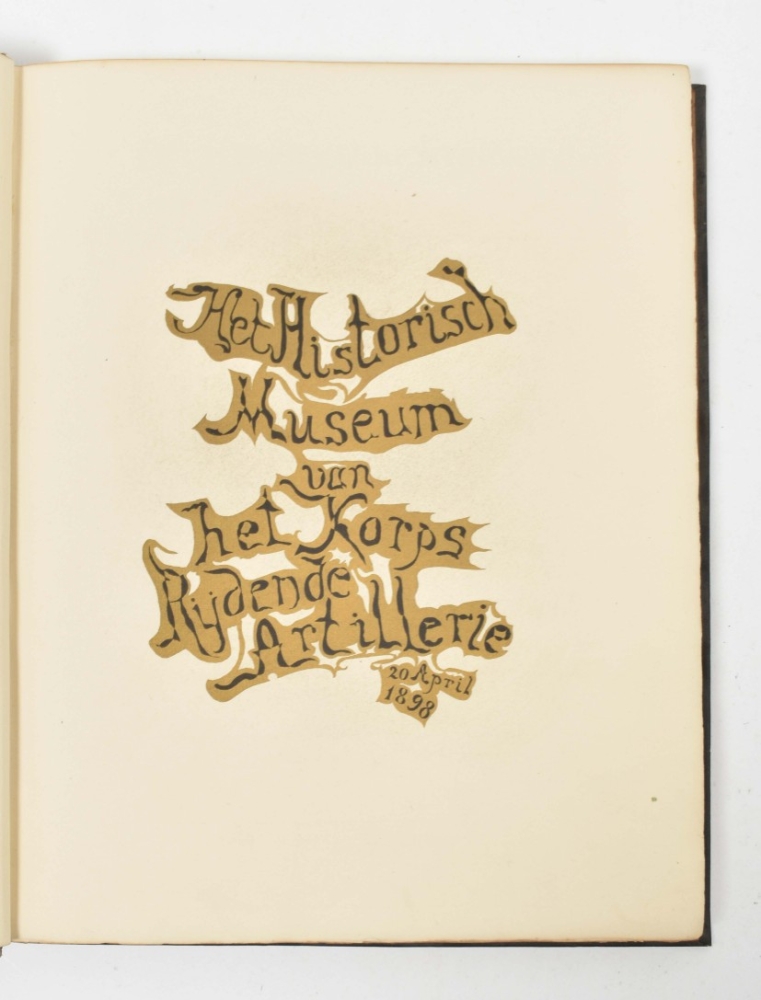 Het Historisch
Museum
van
het Korps
Rijdende
Artillerie
20 April
1898